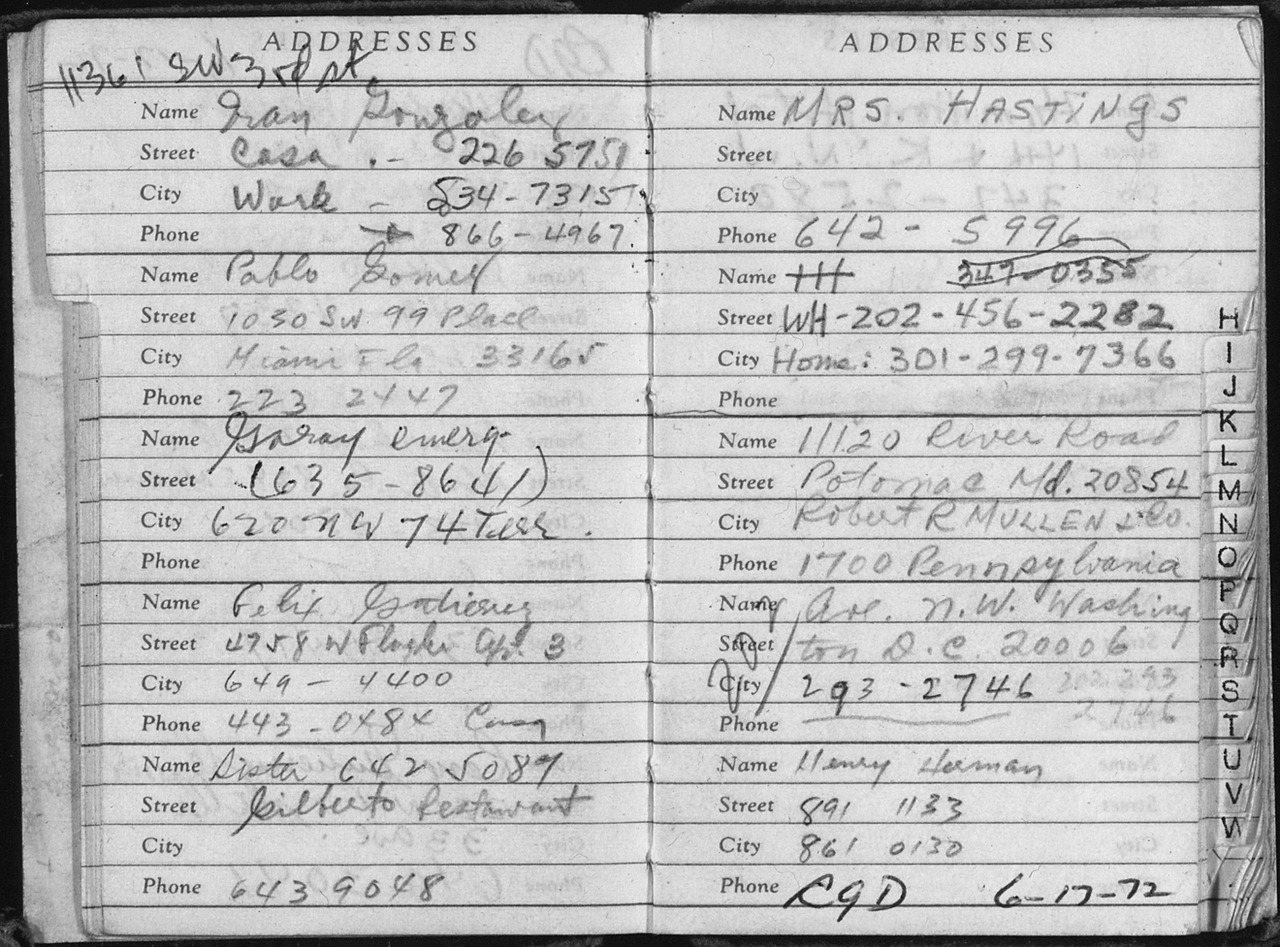 ADDRESSES
11361 SW 3rd St.
Name Iran Gonzalez
Street Casa . - 226 5751
City Work - 534-7315
Phone 866-4967.
Name Pablo Gomez
Street 1030 SW 99 Place
City Miami Fla 33165
Phone 223 2447
Name Garay emerg
Street (635-8641)
City 620 NW 74 Terr.
Phone
Name Felix Gutierrez
Street 4758 W Flagler Apt 3
City 649 - 4400
Phone 443-0484 Casa
Name Sister 642 5089
Street Gilberto Restaurant
City
Phone 643 9048
ADDRESSES
Name MRS. HASTINGS
Street
City
Phone 642 - 5996
Name HH 347-0355
Street WH-202-456-2282
City Home: 301-299-7366
Phone
Name 11120 River Road
Street Potomac Md. 20854
City Robert R MULLEN & Co.
Phone 1700 Pennsylvania
Name Ave. N.W. Washing
Street ton D.C. 20006
City 293-2746 202 293
Phone 2746
Name Henry Herman
Street 891 1133
City 861 0130
Phone RGD 6-17-72
H
I
J
K
L
M
N
O
P
Q
R
S
T
U
V
W
Y